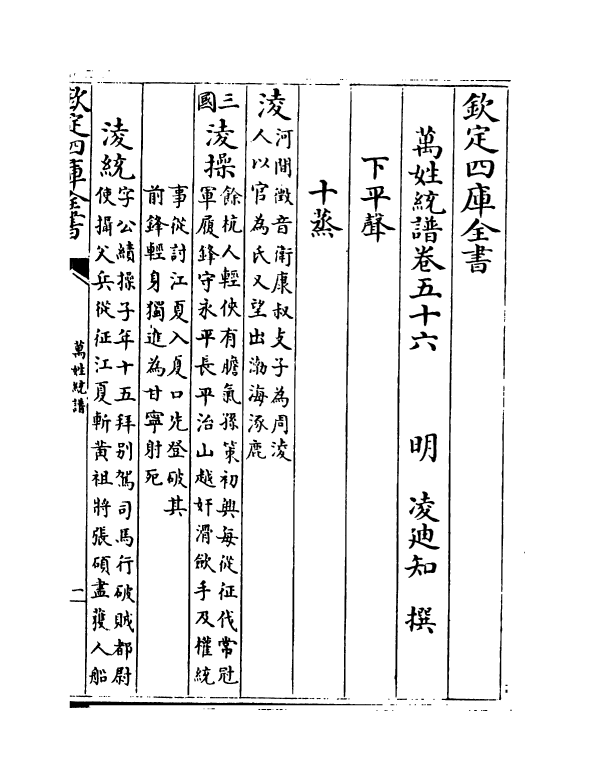 欽定四庫全書
萬姓統譜卷五十六　明　淩迪知　撰
下平聲
十蒸
淩
河間徵音衛康叔支子為周淩
人以官為氏又望出渤海涿鹿
三國
淩操
餘杭人輕俠有膽氣孫策初興每從征伐常冠
軍履鋒守永平長平治山越奸滑斂手及權統
事從討江夏入夏口先登破其
前鋒輕身獨進為甘寧射死
淩統
字公績操子年十五拜别駕司馬行破賊都尉
使攝父兵從征江夏斬黃祖將張碩盡獲人船
欽定四庫全書
萬姓統譜
一